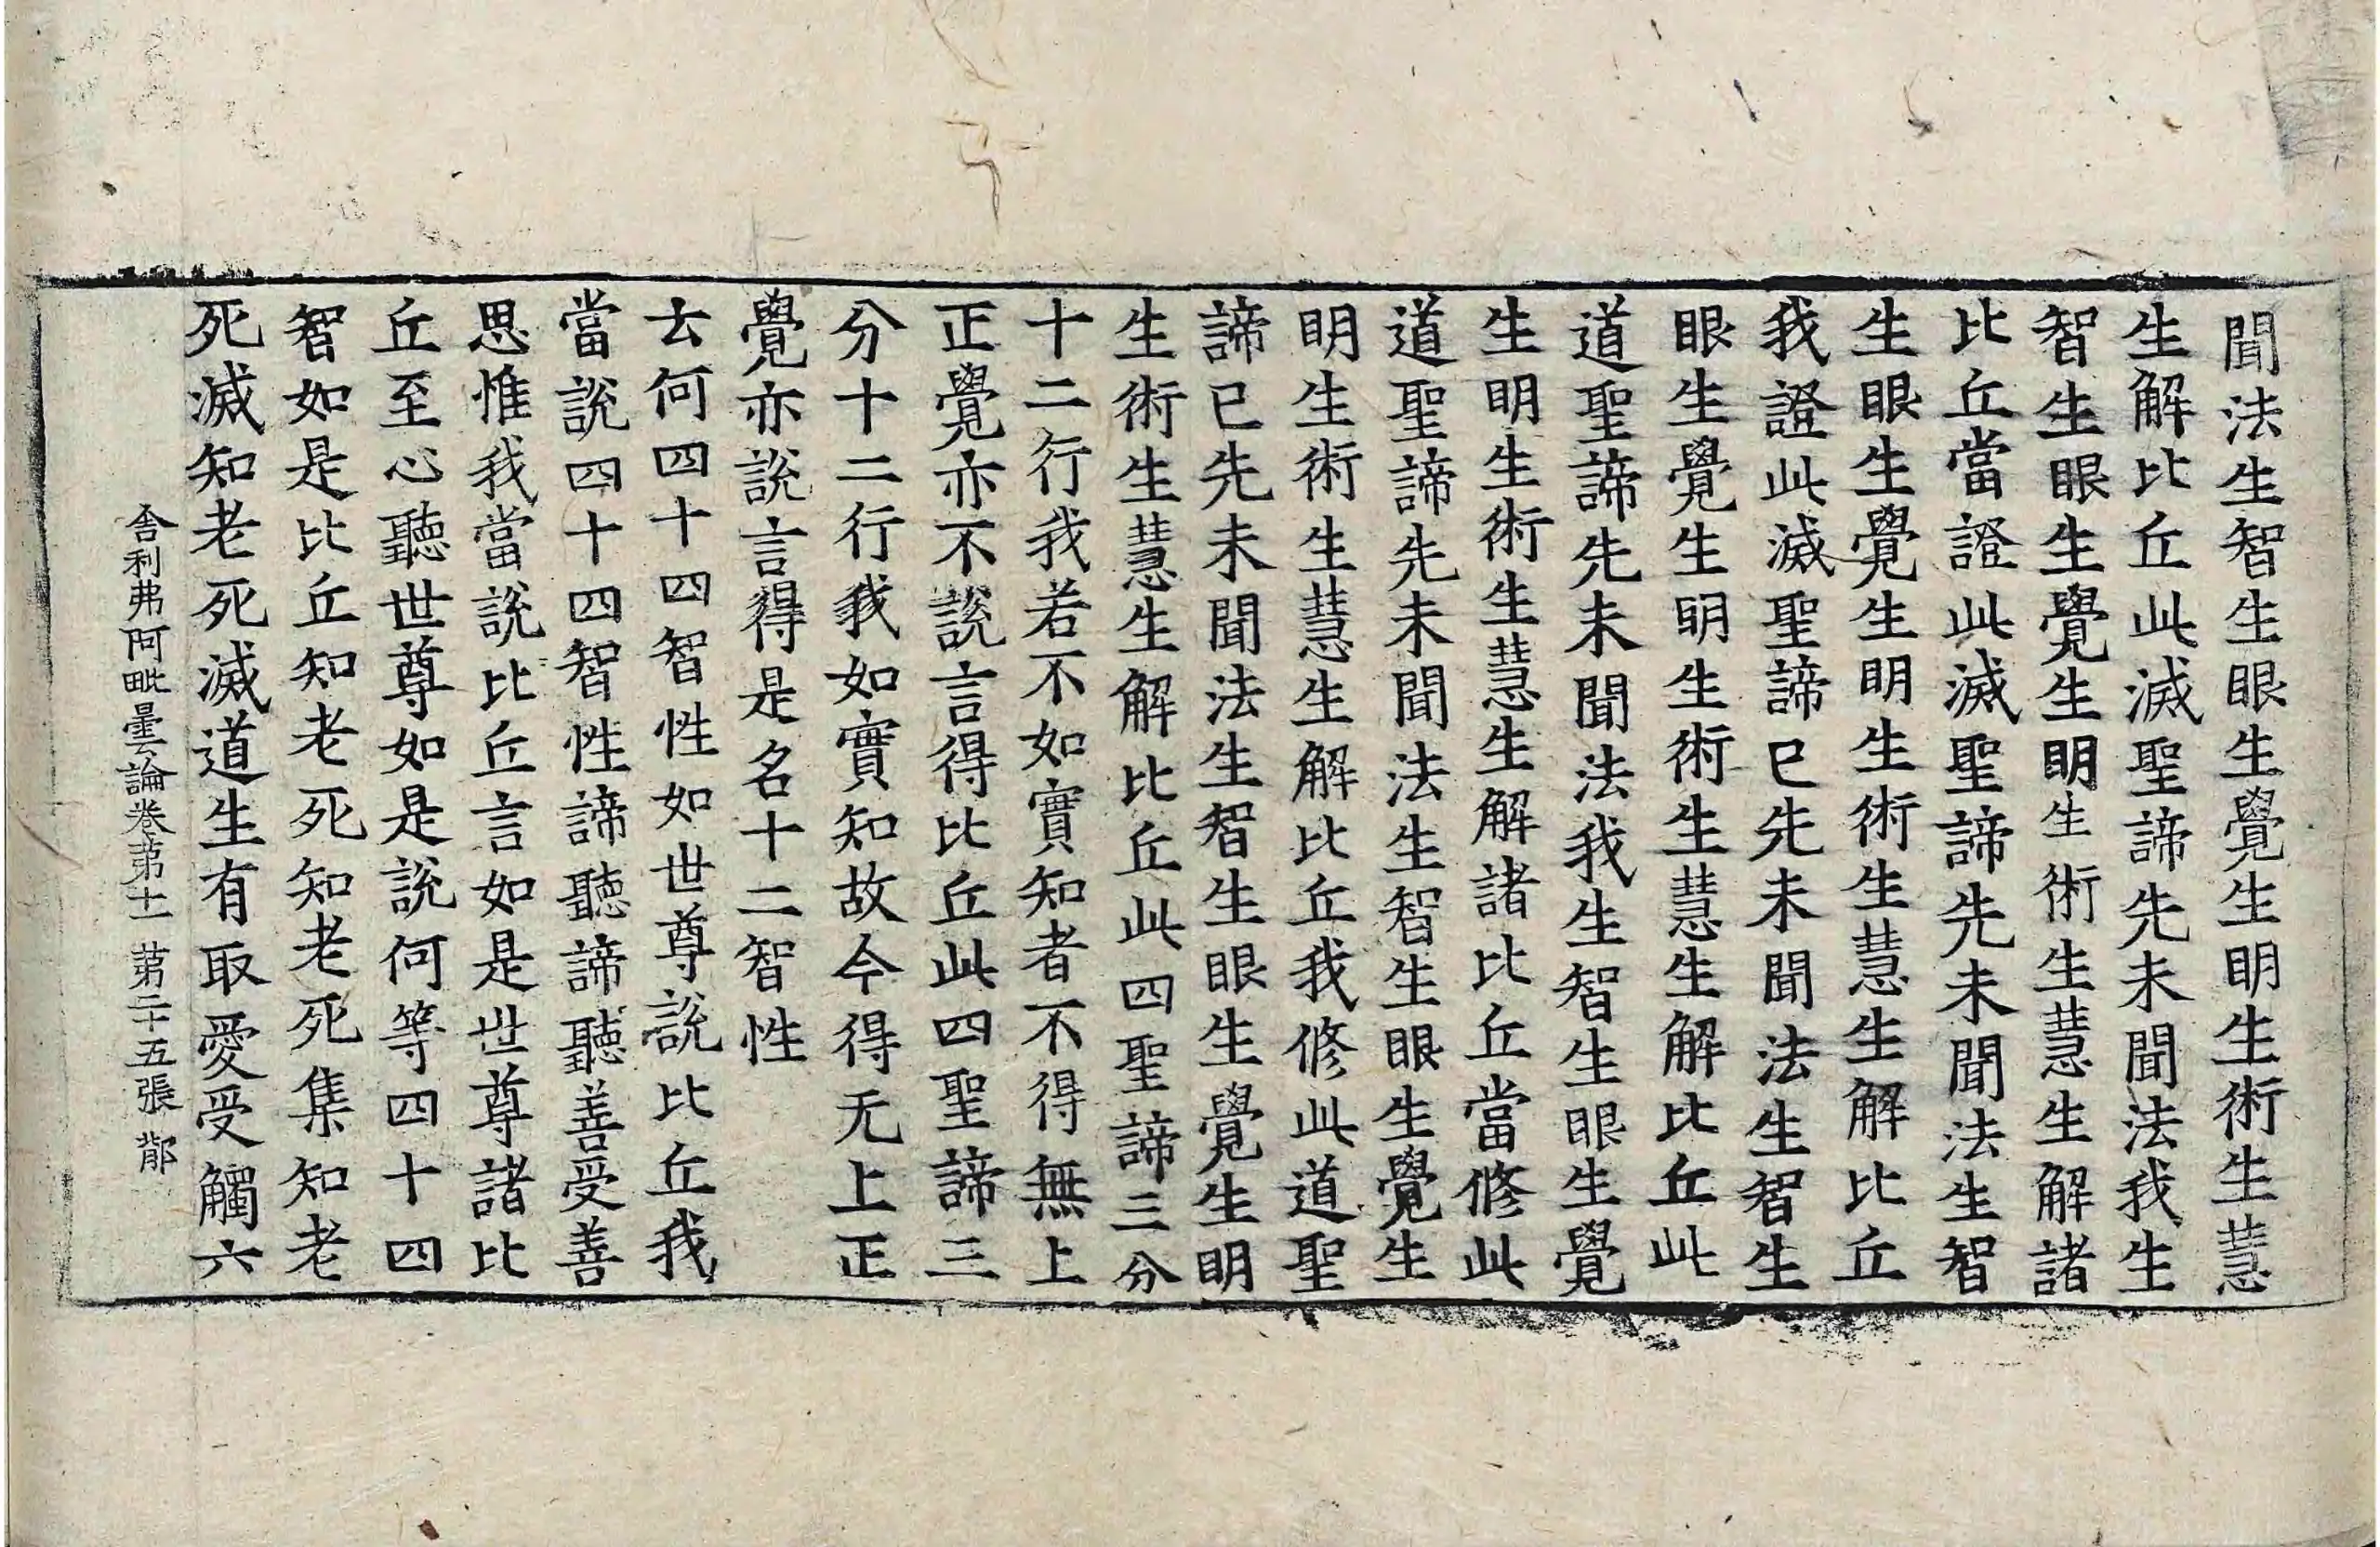 聞法生智生眼生覺生明生術生慧
生解比丘此滅聖諦先未聞法我生
智生眼生覺生明生術生慧生解諸
比丘當證此滅聖諦先未聞法生智
生眼生覺生明生術生慧生解比丘
我證此滅聖諦已先未聞法生智生
眼生覺生明生術生慧生解比丘此
道聖諦先未聞法我生智生眼生覺
生明生術生慧生解諸比丘當修此
道聖諦先未聞法生智生眼生覺生
明生術生慧生解比丘我修此道聖
諦已先未聞法生智生眼生覺生明
生術生慧生解比丘此四聖諦三分
十二行我若不如實知者不得無上
正覺亦不說言得比丘此四聖諦三
分十二行我如實知故今得无上正
覺亦說言得是名十二智性
云何四十四智性如世尊說比丘我
當說四十四智性諦聽諦聽善受善
思惟我當說比丘言如是世尊諸比
丘至心聽世尊如是說何等四十四
智如是比丘知老死知老死集知老
死滅知老死滅道生有取愛受觸六
舍利弗阿毗曇論卷第十一 第二十五張